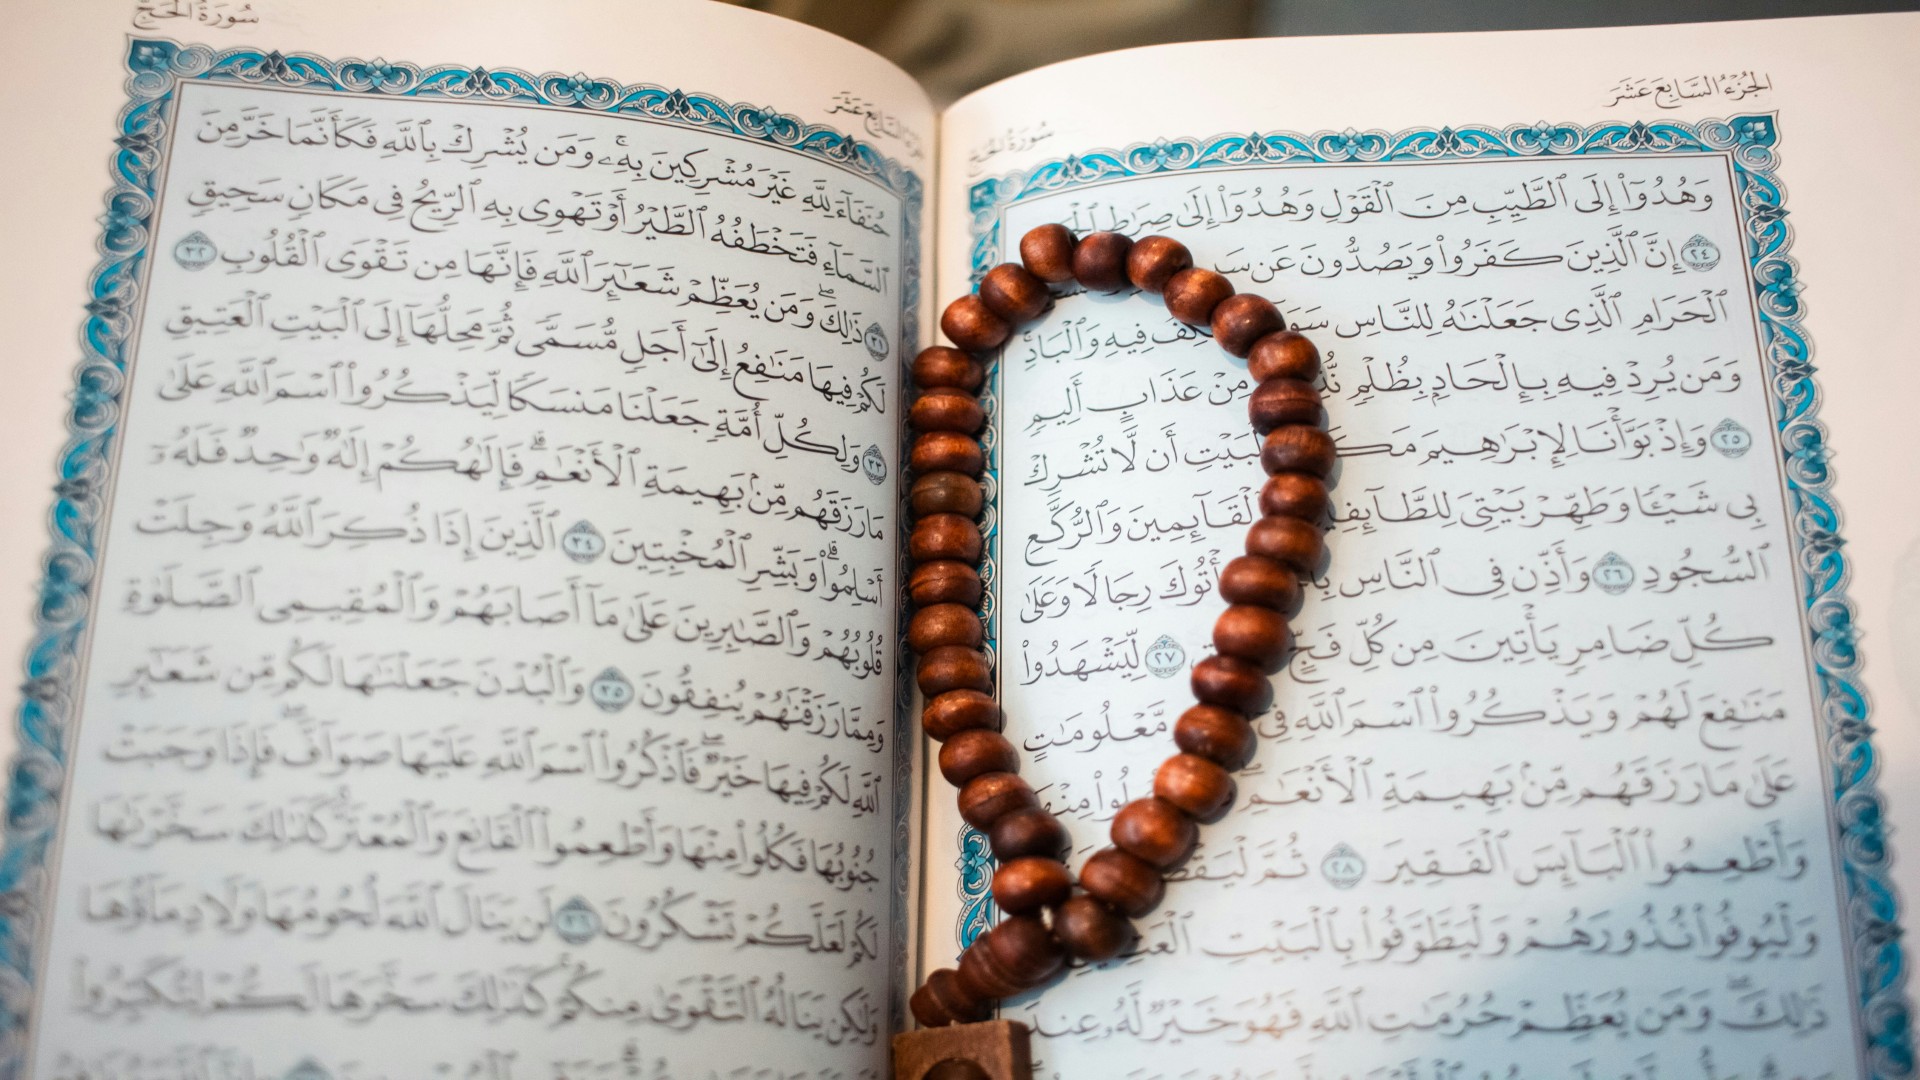 الجُزْءُ السَّابِعَ عَشَرَ
سُورَةُ الحَجِّ
وَهُدُوٓاْ إِلَى ٱلطَّيِّبِ مِنَ ٱلۡقَوۡلِ وَهُدُوٓاْ إِلَىٰ صِرَٰطِ
٢٤ إِنَّ ٱلَّذِينَ كَفَرُواْ وَيَصُدُّونَ عَن
ٱلۡحَرَامِ ٱلَّذِي جَعَلۡنَٰهُ لِلنَّاسِ فِيهِ وَٱلۡبَادِۚ
وَمَن يُرِدۡ فِيهِ بِإِلۡحَادِۭ بِظُلۡمٖ مِنۡ عَذَابٍ أَلِيمٖ
٢٥ وَإِذۡ بَوَّأۡنَا لِإِبۡرَٰهِيمَ ٱلۡبَيۡتِ أَن لَّا تُشۡرِكۡ
بِي شَيۡـٔٗا وَطَهِّرۡ بَيۡتِيَ لِلطَّآئِفِينَ وَٱلۡقَآئِمِينَ وَٱلرُّكَّعِ
ٱلسُّجُودِ ٢٦ وَأَذِّن فِي ٱلنَّاسِ يَأۡتُوكَ رِجَالٗا وَعَلَىٰ
كُلِّ ضَامِرٖ يَأۡتِينَ مِن كُلِّ فَجٍّ ٢٧ لِّيَشۡهَدُواْ
مَنَٰفِعَ لَهُمۡ وَيَذۡكُرُواْ ٱسۡمَ ٱللَّهِ فِيٓ مَّعۡلُومَٰتٍ
عَلَىٰ مَا رَزَقَهُم مِّنۢ بَهِيمَةِ ٱلۡأَنۡعَٰمِۖ مِنۡهَا
وَأَطۡعِمُواْ ٱلۡبَآئِسَ ٱلۡفَقِيرَ ٢٨ ثُمَّ
وَلۡيُوفُواْ نُذُورَهُمۡ وَلۡيَطَّوَّفُواْ بِٱلۡبَيۡتِ
ذَٰلِكَۖ وَمَن يُعَظِّمۡ حُرُمَٰتِ ٱللَّهِ فَهُوَ خَيۡرٞ لَّهُۥ عِندَ
سُورَةُ الحَجِّ
حُنَفَآءَ لِلَّهِ غَيۡرَ مُشۡرِكِينَ بِهِۦۚ وَمَن يُشۡرِكۡ بِٱللَّهِ فَكَأَنَّمَا خَرَّ مِنَ
ٱلسَّمَآءِ فَتَخۡطَفُهُ ٱلطَّيۡرُ أَوۡ تَهۡوِي بِهِ ٱلرِّيحُ فِي مَكَانٖ سَحِيقٖ
٣١ ذَٰلِكَۖ وَمَن يُعَظِّمۡ شَعَٰٓئِرَ ٱللَّهِ فَإِنَّهَا مِن تَقۡوَى ٱلۡقُلُوبِ ٣٢
لَكُمۡ فِيهَا مَنَٰفِعُ إِلَىٰٓ أَجَلٖ مُّسَمّٗى ثُمَّ مَحِلُّهَآ إِلَى ٱلۡبَيۡتِ ٱلۡعَتِيقِ
٣٣ وَلِكُلِّ أُمَّةٖ جَعَلۡنَا مَنسَكٗا لِّيَذۡكُرُواْ ٱسۡمَ ٱللَّهِ عَلَىٰ
مَا رَزَقَهُم مِّنۢ بَهِيمَةِ ٱلۡأَنۡعَٰمِۗ فَإِلَٰهُكُمۡ إِلَٰهٞ وَٰحِدٞ فَلَهُۥٓ
أَسۡلِمُواْۗ وَبَشِّرِ ٱلۡمُخۡبِتِينَ ٣٤ ٱلَّذِينَ إِذَا ذُكِرَ ٱللَّهُ وَجِلَتۡ
قُلُوبُهُمۡ وَٱلصَّٰبِرِينَ عَلَىٰ مَآ أَصَابَهُمۡ وَٱلۡمُقِيمِي ٱلصَّلَوٰةِ
وَمِمَّا رَزَقۡنَٰهُمۡ يُنفِقُونَ ٣٥ وَٱلۡبُدۡنَ جَعَلۡنَٰهَا لَكُم مِّن شَعَٰٓئِرِ
ٱللَّهِ لَكُمۡ فِيهَا خَيۡرٞۖ فَٱذۡكُرُواْ ٱسۡمَ ٱللَّهِ عَلَيۡهَا صَوَآفَّۖ فَإِذَا وَجَبَتۡ
جُنُوبُهَا فَكُلُواْ مِنۡهَا وَأَطۡعِمُواْ ٱلۡقَانِعَ وَٱلۡمُعۡتَرَّۚ كَذَٰلِكَ سَخَّرۡنَٰهَا
لَكُمۡ لَعَلَّكُمۡ تَشۡكُرُونَ ٣٦ لَن يَنَالَ ٱللَّهَ لُحُومُهَا وَلَا دِمَآؤُهَا
وَلَٰكِن يَنَالُهُ ٱلتَّقۡوَىٰ مِنكُمۡۚ كَذَٰلِكَ سَخَّرَهَا لَكُمۡ لِتُكَبِّرُواْ